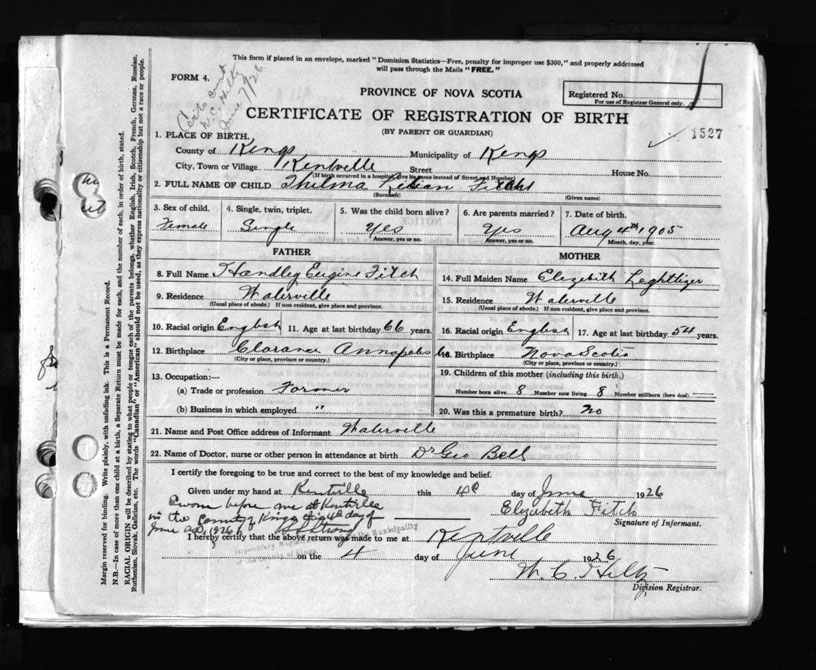 This form if placed in an envelope, marked "Dominion Statistics—Free, penalty for improper use $300," and properly addressed
will pass through the Mails "FREE."
FORM 4.
PROVINCE OF NOVA SCOTIA
Registered No.
For use of Registrar General only.
CERTIFICATE OF REGISTRATION OF BIRTH
(BY PARENT OR GUARDIAN)
1527
1. PLACE OF BIRTH.
County of Kings Municipality of Kings
City, Town or Village Kentville Street House No.
(If birth occurred in a hospital, give its name instead of Street and Number)
2. FULL NAME OF CHILD Thelma Fitch
(Surname) (Given name)
3. Sex of child. 4. Single, twin, triplet. 5. Was the child born alive? 6. Are parents married? 7. Date of birth.
Female Single Yes Yes Aug 4th 1905
Answer, yes or no. Answer, yes or no. Month, day, year.
FATHER MOTHER
8. Full Name Handley Eugine Fitch 14. Full Maiden Name Elizebith
9. Residence Waterville 15. Residence Waterville
(Usual place of abode.) If non resident, give place and province. (Usual place of abode.) If non resident, give place and province.
10. Racial origin English 11. Age at last birthday 66 years. 16. Racial origin English 17. Age at last birthday 54 years.
12. Birthplace Clarance Annapolis 18. Birthplace Nova Scotia
(City or place, province or country.) (City or place, province or country.)
13. Occupation:— 19. Children of this mother (including this birth.)
(a) Trade or profession Farmer Number born alive 8 Number now living 8 Number stillborn (born dead) —
(b) Business in which employed " 20. Was this a premature birth? No
21. Name and Post Office address of Informant Waterville
22. Name of Doctor, nurse or other person in attendance at birth Dr Geo Bell
I certify the foregoing to be true and correct to the best of my knowledge and belief.
Given under my hand at Kentville this 4th day of June 1926
Sworn before me at Kentville
in the County of Kings this 4th day of
June AD 1926
Elizabeth Fitch
Signature of Informant.
I hereby certify that the above return was made to me at Kentville
on the 4 day of June 1926
W. C. Hiltz
Division Registrar.
Margin reserved for binding. Write plainly, with unfading ink. This is a Permanent Record.
N.B.—In case of more than one child at a birth, a Separate Return must be made for each, and the number of each, in order of birth, stated.
RACIAL ORIGIN will be described by stating to what people or tongue each of the parents belongs, whether English, Irish, Scotch, French, German, Russian,
Ruthenian, Slovak, Galician, etc. The words "Canadian" or "American" should not be used, as they express nationality or citizenship but not a race or people.